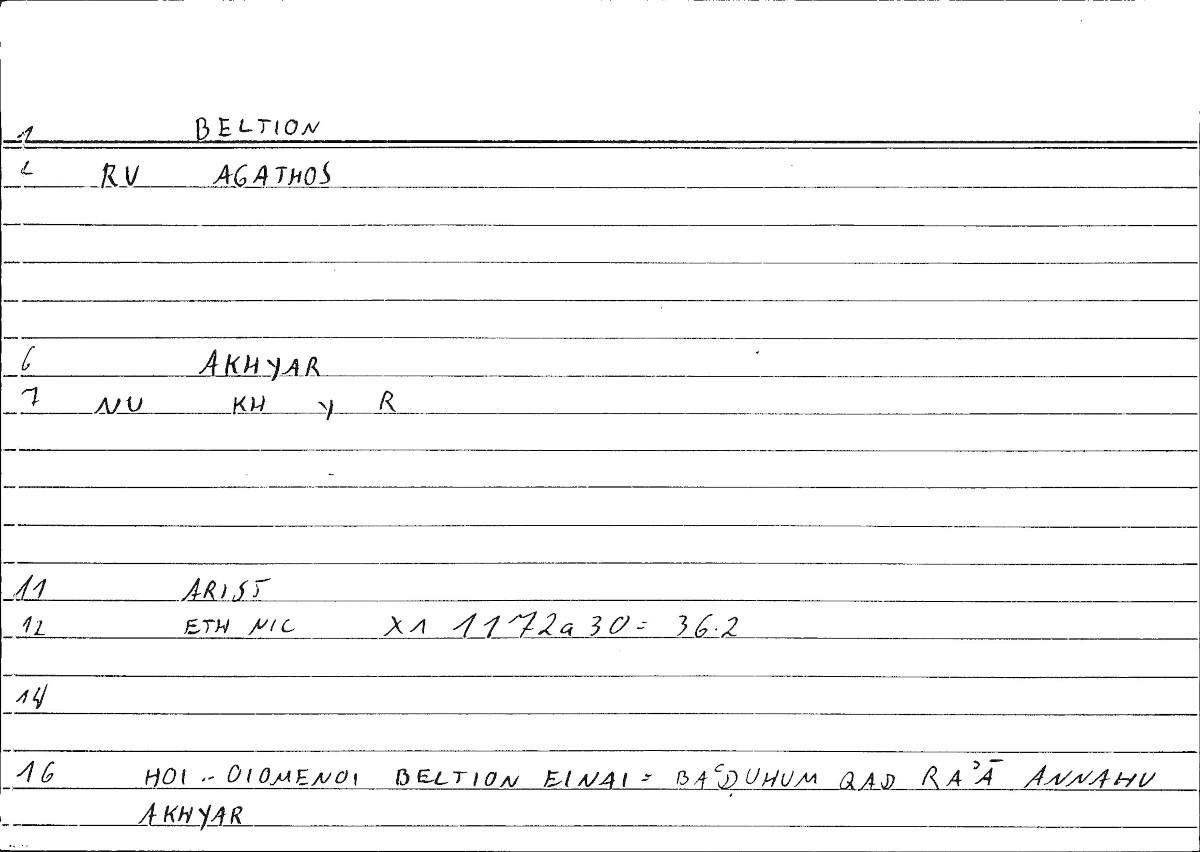 1 BELTION
2 RV AGATHOS
6 AKHYAR
7 NU KH Y R
11 ARIST
12 ETH NIC X1 1172a30= 36.2
14
16 HOI .. OIOMENOI BELTION EINAI = BAʿḌUHUM QAD RAʾĀ ANNAHU
AKHYAR